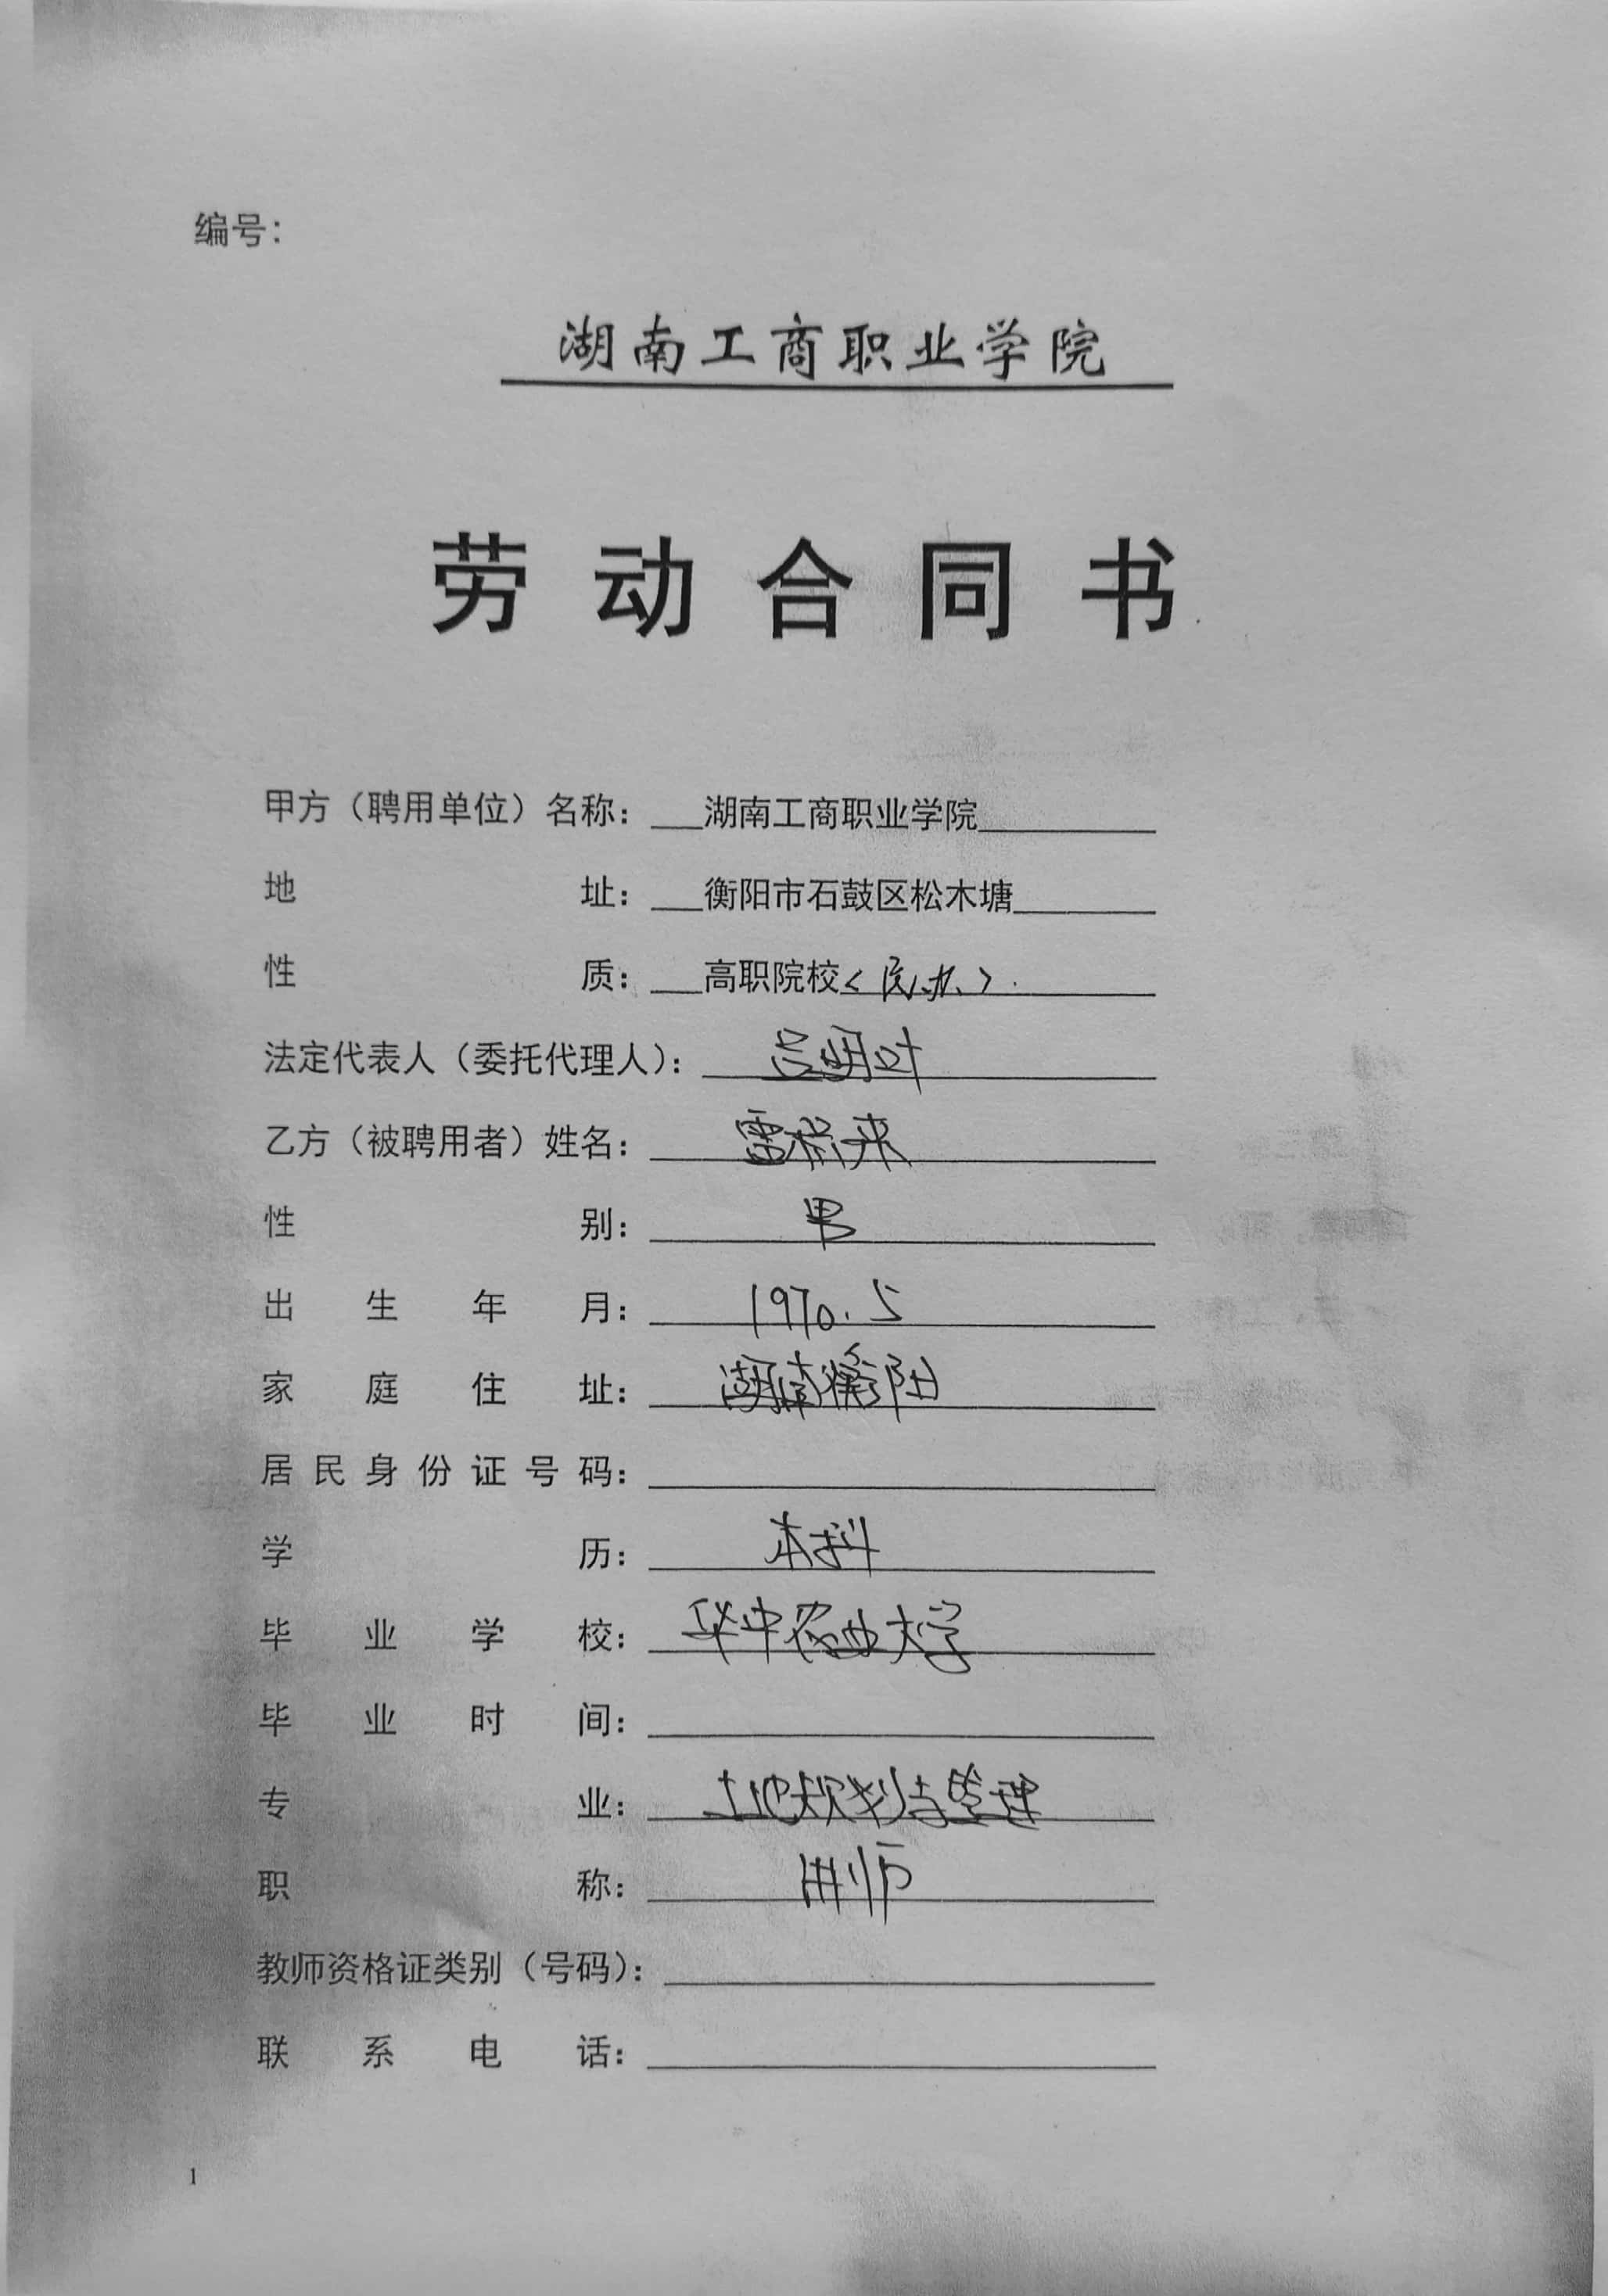 编号：
湖南工商职业学院
劳动合同书
甲方（聘用单位）名称：湖南工商职业学院
地址：衡阳市石鼓区松木塘
性质：高职院校（民办）.
法定代表人（委托代理人）：吕明叶
乙方（被聘用者）姓名：雷
性别：男
出生年月：1970.5
家庭住址：湖南衡阳
居民身份证号码：
学历：本科
毕业学校：华中农业大学
毕业时间：
专业：土地规划与管理
职称：讲师
教师资格证类别（号码）：
联系电话：
1